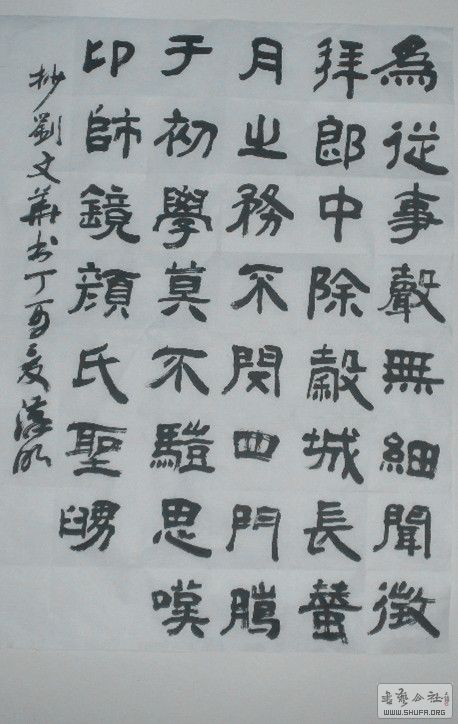 為從事聲無細聞徵
拜郎中除穀城長蠶
月之務不閔四門騰
于初學莫不騹思嘆
印師鏡顏氏聖舅
抄劉文華書丁酉夏漢
書藝公社
WWW.SHUFA.ORG